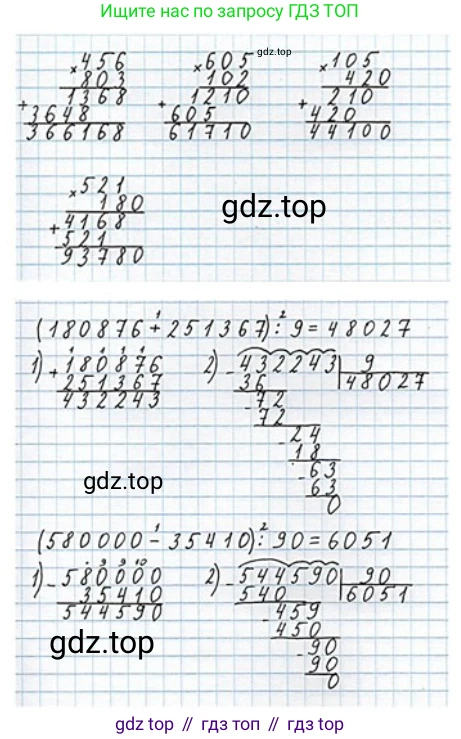 Ищите нас по запросу ГДЗ ТОП
× 456 × 605 × 105
803 102 420
+ 1368 + 1210 + 210
3648 605 420
366168 61710 44100
gdz.top
× 521
180
+ 4168
521
93780
gdz.top
(180876 + 251367) : 9 = 48027
1) + 180876 2) - 432243 | 9
251367 36 48027
432243 - 72
72
- 24
18
- 63
63
0
gdz.top
(580000 - 35410) : 90 = 6051
1) - 580000 2) - 544590 | 90
35410 540 6051
544590 - 459
450
- 90
90
0
gdz.top
gdz.top // гдз топ // гдз.top